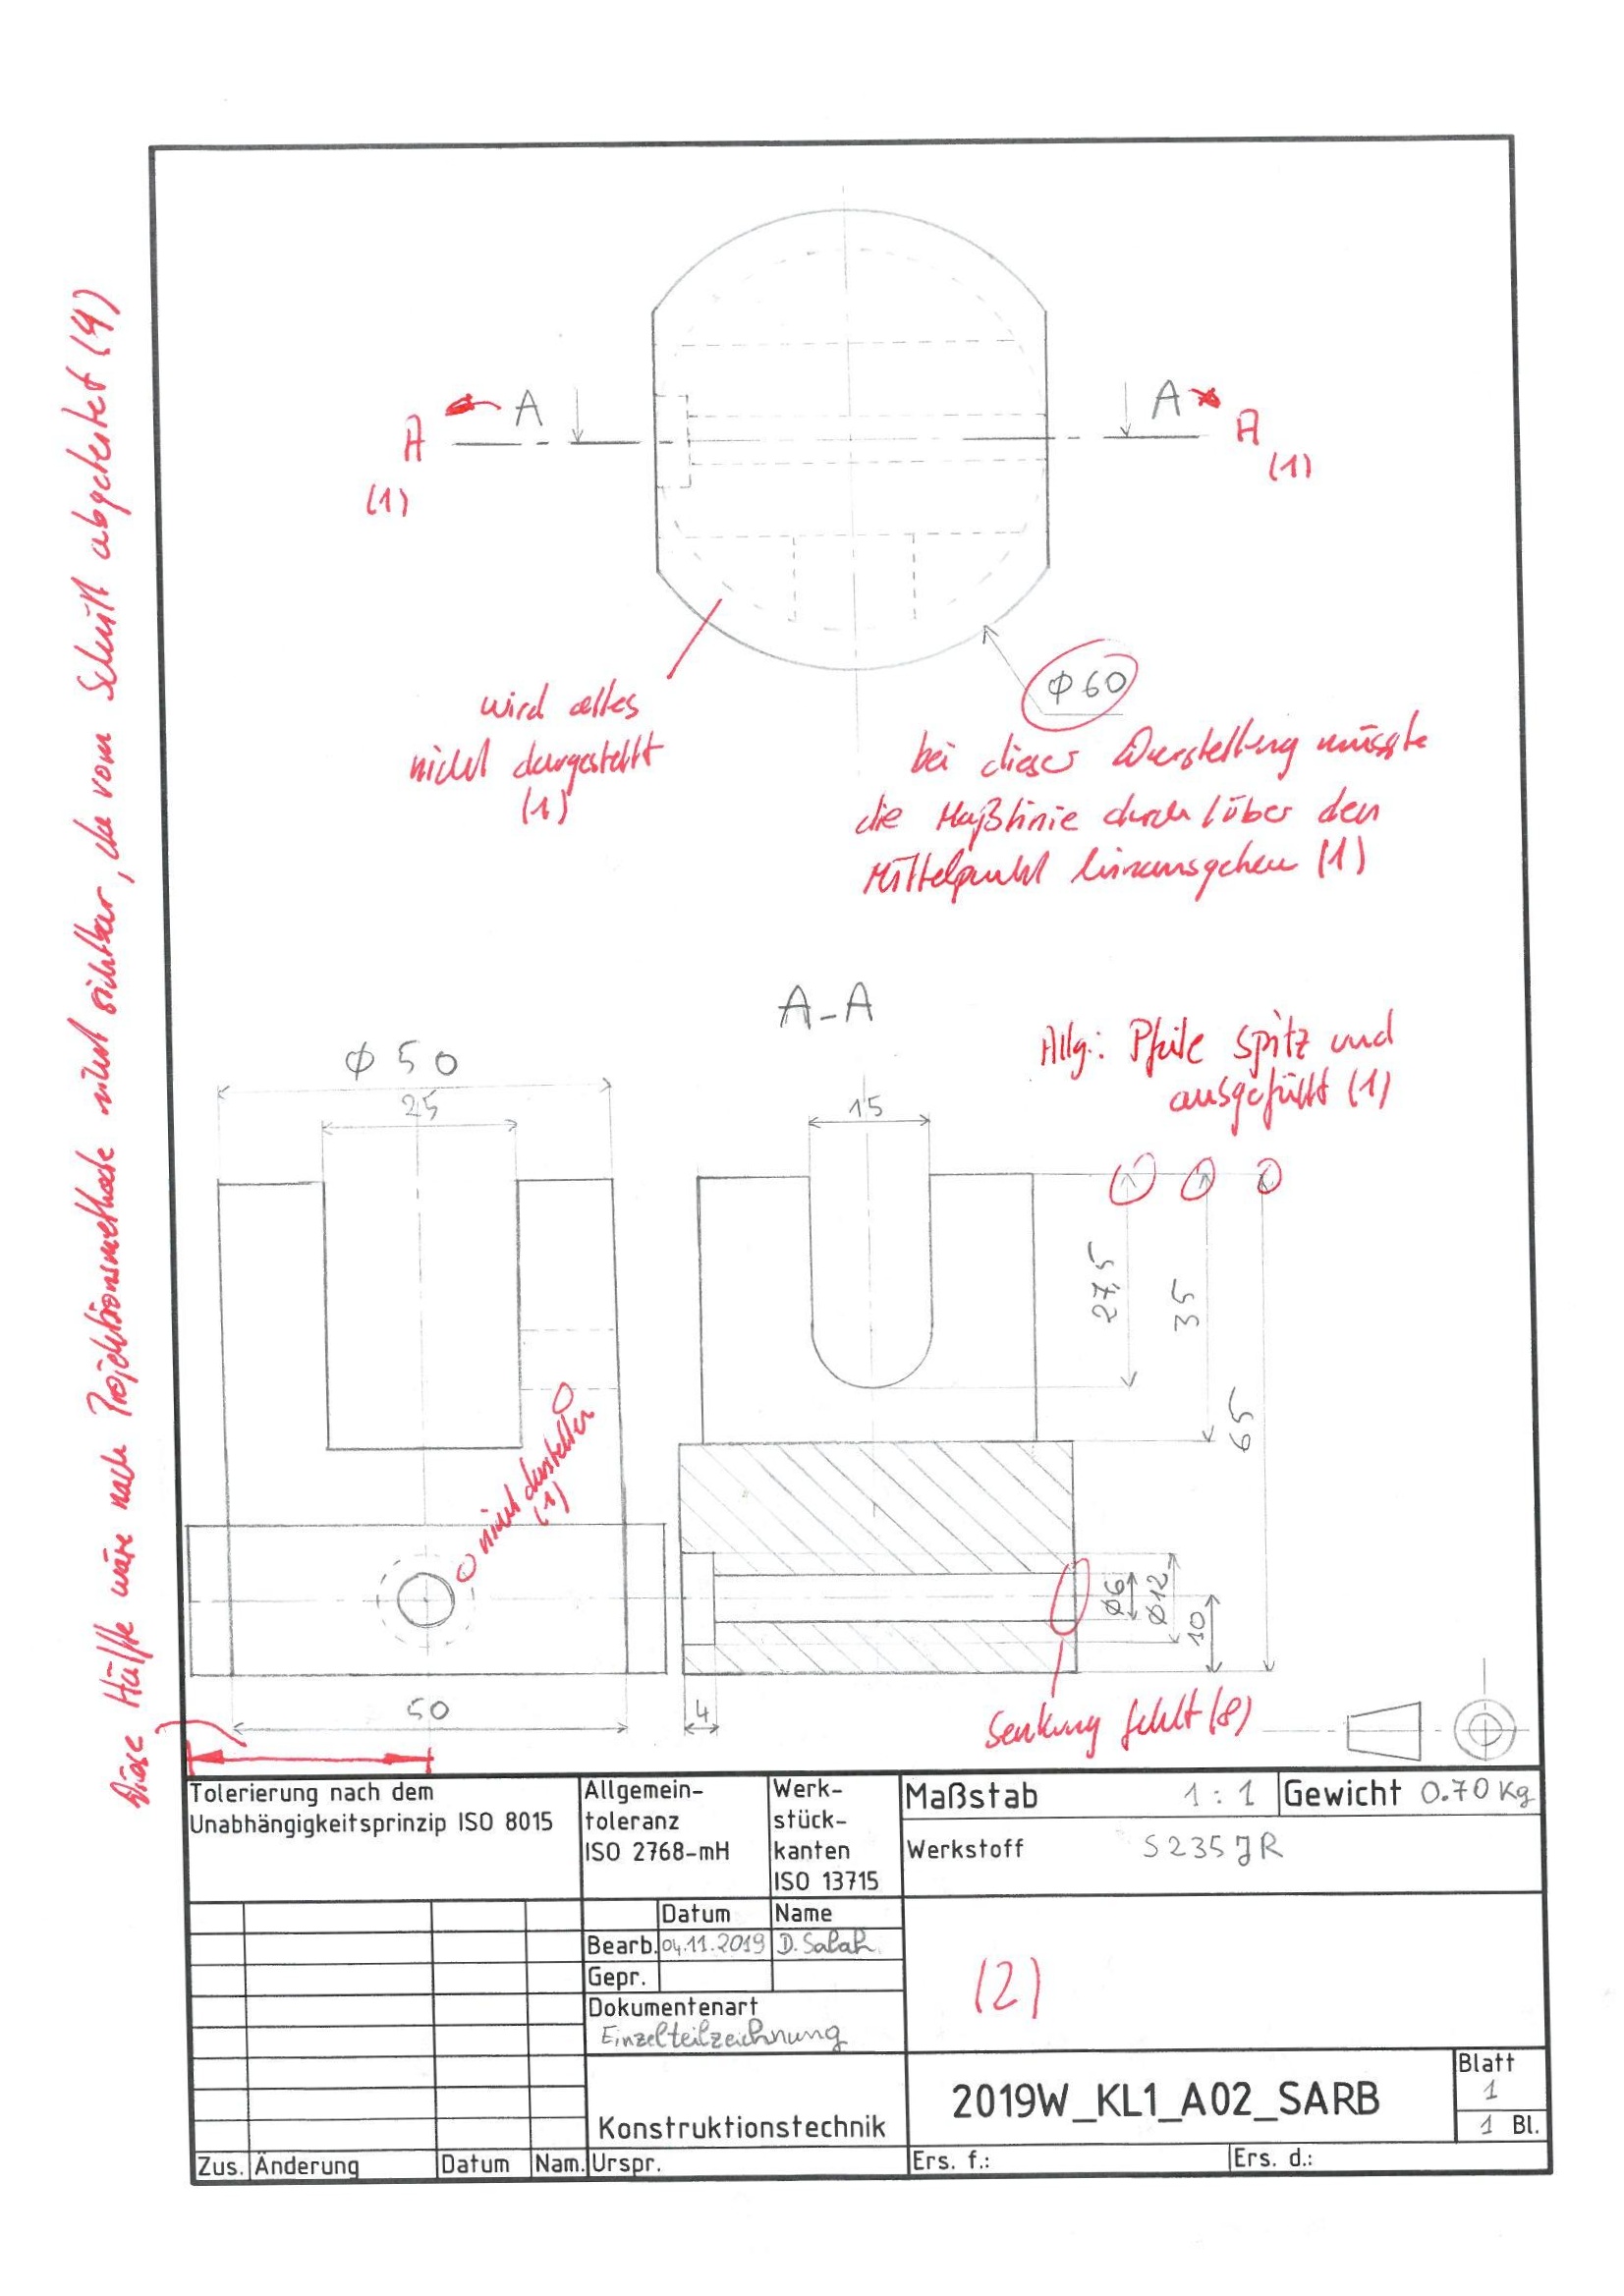 Diese Hälfte wäre nach Projektionsmethode nicht sichtbar, da vom Schnitt abgeleitet (4)
A
A
A
A
(1)
(1)
Φ60
wird alles
nicht dargestellt
(1)
bei dieser Darstellung müsste
die Maßlinie durch / über den
Mittelpunkt hinausgehen (1)
A-A
Allg.: Pfeile spitz und
ausgefüllt (1)
Φ 50
25
15
27,5
35
65
nicht darstellen
(1)
Ø6
Ø12
10
50
4
Senkung fehlt (8)
Tolerierung nach dem
Unabhängigkeitsprinzip ISO 8015
Allgemein-
toleranz
ISO 2768-mH
Werk-
stück-
kanten
ISO 13715
Maßstab 1:1
Gewicht 0.70 Kg
Werkstoff S235JR
Datum Name
Bearb. 04.11.2019 D. Salah
Gepr.
Dokumentenart
Einzelteilzeichnung
(2)
Konstruktionstechnik
2019W_KL1_A02_SARB
Blatt
1
1 Bl.
Zus. Änderung Datum Nam. Urspr. Ers. f.: Ers. d.: